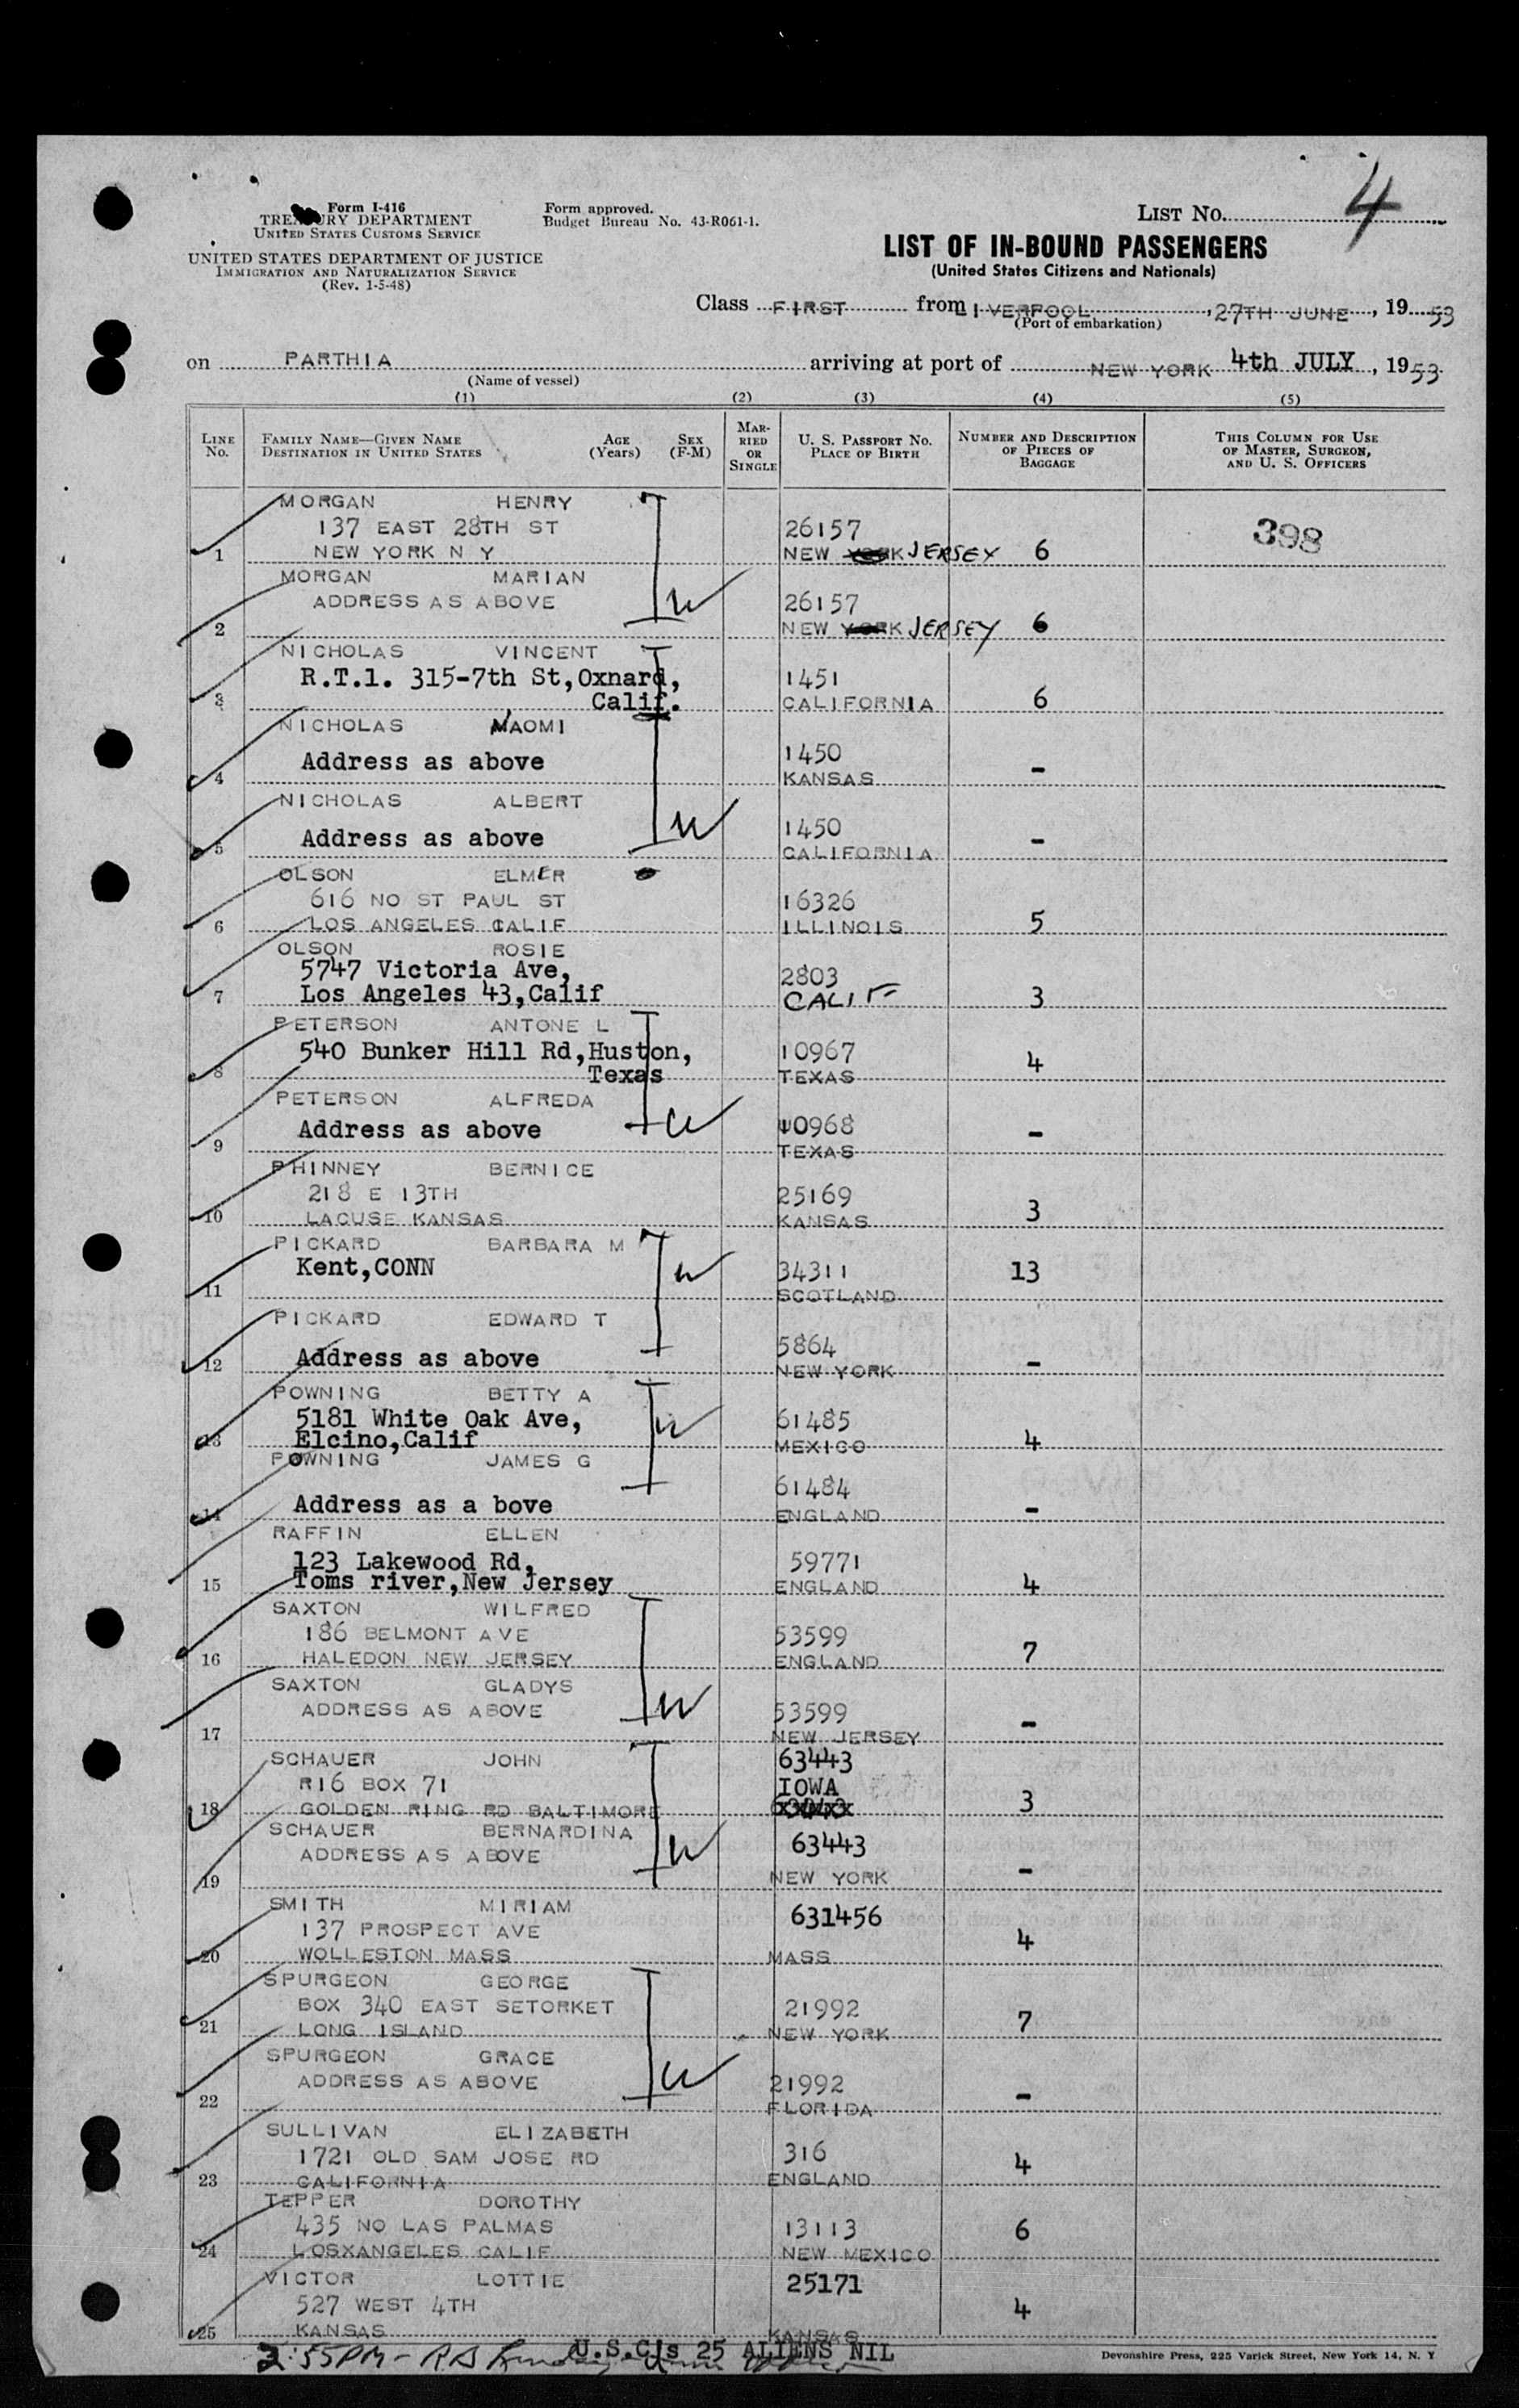 Form I-416
TREASURY DEPARTMENT
UNITED STATES CUSTOMS SERVICE
UNITED STATES DEPARTMENT OF JUSTICE
IMMIGRATION AND NATURALIZATION SERVICE
(Rev. 1-5-48)
Form approved.
Budget Bureau No. 43-R061-1.
LIST No. 4
LIST OF IN-BOUND PASSENGERS
(United States Citizens and Nationals)
Class FIRST from LIVERPOOL, 27TH JUNE, 1953
(Port of embarkation)
on PARTHIA arriving at port of NEW YORK 4th JULY, 1953
(Name of vessel)
(1) (2) (3) (4) (5)
LINE No. FAMILY NAME—GIVEN NAME DESTINATION IN UNITED STATES AGE (Years) SEX (F-M) MARRIED OR SINGLE U. S. PASSPORT No. PLACE OF BIRTH NUMBER AND DESCRIPTION OF PIECES OF BAGGAGE THIS COLUMN FOR USE OF MASTER, SURGEON, AND U. S. OFFICERS
MORGAN HENRY
137 EAST 28TH ST 26157 398
1 NEW YORK N Y NEW JERSEY 6
MORGAN MARIAN
ADDRESS AS ABOVE 26157
2 NEW JERSEY 6
NICHOLAS VINCENT
R.T.1. 315-7th St,Oxnard, 1451
3 Calif. CALIFORNIA 6
NICHOLAS NAOMI
Address as above 1450
4 KANSAS -
NICHOLAS ALBERT
Address as above 1450
5 CALIFORNIA -
OLSON ELMER
616 NO ST PAUL ST 16326
6 LOS ANGELES CALIF ILLINOIS 5
OLSON ROSIE
5747 Victoria Ave, 2803
7 Los Angeles 43,Calif CALIF 3
PETERSON ANTONE L
540 Bunker Hill Rd,Huston, 10967 4
8 Texas TEXAS
PETERSON ALFREDA
Address as above 10968 -
9 TEXAS
PHINNEY BERNICE
218 E 13TH 25169 3
10 LACUSE KANSAS KANSAS
PICKARD BARBARA M
Kent,CONN 34311 13
11 SCOTLAND
PICKARD EDWARD T
Address as above 5864 -
12 NEW YORK
POWNING BETTY A
5181 White Oak Ave, 61485
13 Elcino,Calif MEXICO 4
POWNING JAMES G
Address as a bove 61484 -
14 ENGLAND
RAFFIN ELLEN
123 Lakewood Rd, 59771
15 Toms river,New Jersey ENGLAND 4
SAXTON WILFRED
186 BELMONT AVE 53599 7
16 HALEDON NEW JERSEY ENGLAND
SAXTON GLADYS
ADDRESS AS ABOVE 53599 -
17 NEW JERSEY
SCHAUER JOHN 63443
R16 BOX 71 IOWA
18 GOLDEN RING RD BALTIMORE 3
SCHAUER BERNARDINA
ADDRESS AS ABOVE 63443 -
19 NEW YORK
SMITH MIRIAM
137 PROSPECT AVE 631456 4
20 WOLLESTON MASS MASS
SPURGEON GEORGE
BOX 340 EAST SETORKET 21992 7
21 LONG ISLAND NEW YORK
SPURGEON GRACE
ADDRESS AS ABOVE 21992 -
22 FLORIDA
SULLIVAN ELIZABETH
1721 OLD SAM JOSE RD 316 4
23 CALIFORNIA ENGLAND
TEPPER DOROTHY
435 NO LAS PALMAS 13113 6
24 LOSXANGELES CALIF NEW MEXICO
VICTOR LOTTIE 25171
527 WEST 4TH 4
25 KANSAS KANSAS
U.S.C!s 25 ALIENS NIL
2:55PM -
Devonshire Press, 225 Varick Street, New York 14, N. Y